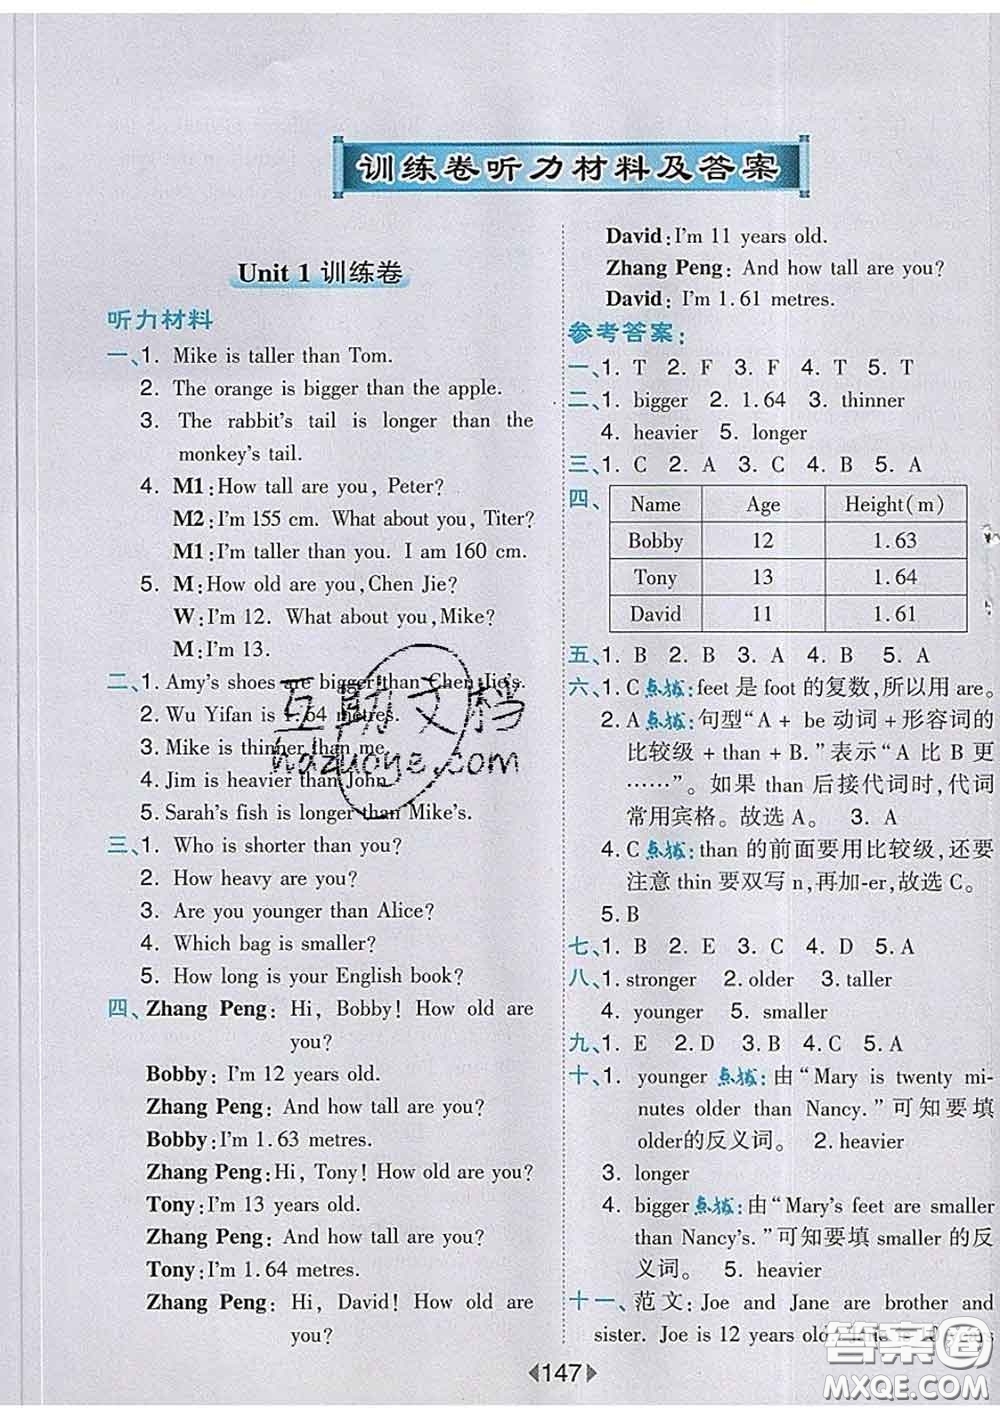 训练卷听力材料及答案
Unit 1 训练卷
听力材料
一、1. Mike is taller than Tom.
2. The orange is bigger than the apple.
3. The rabbit's tail is longer than the
monkey's tail.
4. M1:How tall are you, Peter?
M2:I'm 155 cm. What about you, Titer?
M1:I'm taller than you. I am 160 cm.
5. M:How old are you,Chen Jie?
W:I'm 12. What about you,Mike?
M:I'm 13.
二、1. Amy's shoes are bigger than Chen Jie's.
2. Wu Yifan is 1.64 metres.
3. Mike is thinner than me.
4. Jim is heavier than John.
5. Sarah's fish is longer than Mike's.
三、1. Who is shorter than you?
2. How heavy are you?
3. Are you younger than Alice?
4. Which bag is smaller?
5. How long is your English book?
四、Zhang Peng: Hi, Bobby! How old are
you?
Bobby:I'm 12 years old.
Zhang Peng: And how tall are you?
Bobby:I'm 1.63 metres.
Zhang Peng:Hi, Tony! How old are you?
Tony:I'm 13 years old.
Zhang Peng: And how tall are you?
Tony:I'm 1.64 metres.
Zhang Peng: Hi, David! How old are
you?
David:I'm 11 years old.
Zhang Peng: And how tall are you?
David:I'm 1.61 metres.
参考答案:
一、1. T 2. F 3. F 4. T 5. T
二、1. bigger 2. 1.64 3. thinner
4. heavier 5. longer
三、1. C 2. A 3. C 4. B 5. A
四、
Name Age Height(m)
Bobby 12 1.63
Tony 13 1.64
David 11 1.61
五、1. B 2. B 3. A 4. B 5. A
六、1. C点拨:feet 是 foot 的复数,所以用 are。
2. A点拨:句型“A + be 动词+形容词的
比较级 + than + B.”表示“A 比 B 更
……”。如果 than 后接代词时,代词
常用宾格。故选 A。 3. A
4. C点拨:than 的前面要用比较级,还要
注意 thin 要双写 n,再加-er,故选 C。
5. B
七、1. B 2. E 3. C 4. D 5. A
八、1. stronger 2. older 3. taller
4. younger 5. smaller
九、1. E 2. D 3. B 4. C 5. A
十、1. younger 点拨:由“Mary is twenty mi-
nutes older than Nancy.”可知要填
older的反义词。 2. heavier
3. longer
4. bigger点拨:由“Mary's feet are smaller
than Nancy's.”可知要填 smaller 的反
义词。 5. heavier
十一、范文:Joe and Jane are brother and
sister. Joe is 12 years old. Jane is 10
147
互助文档
hdzuoye.com
答案圈
MXQE.COM